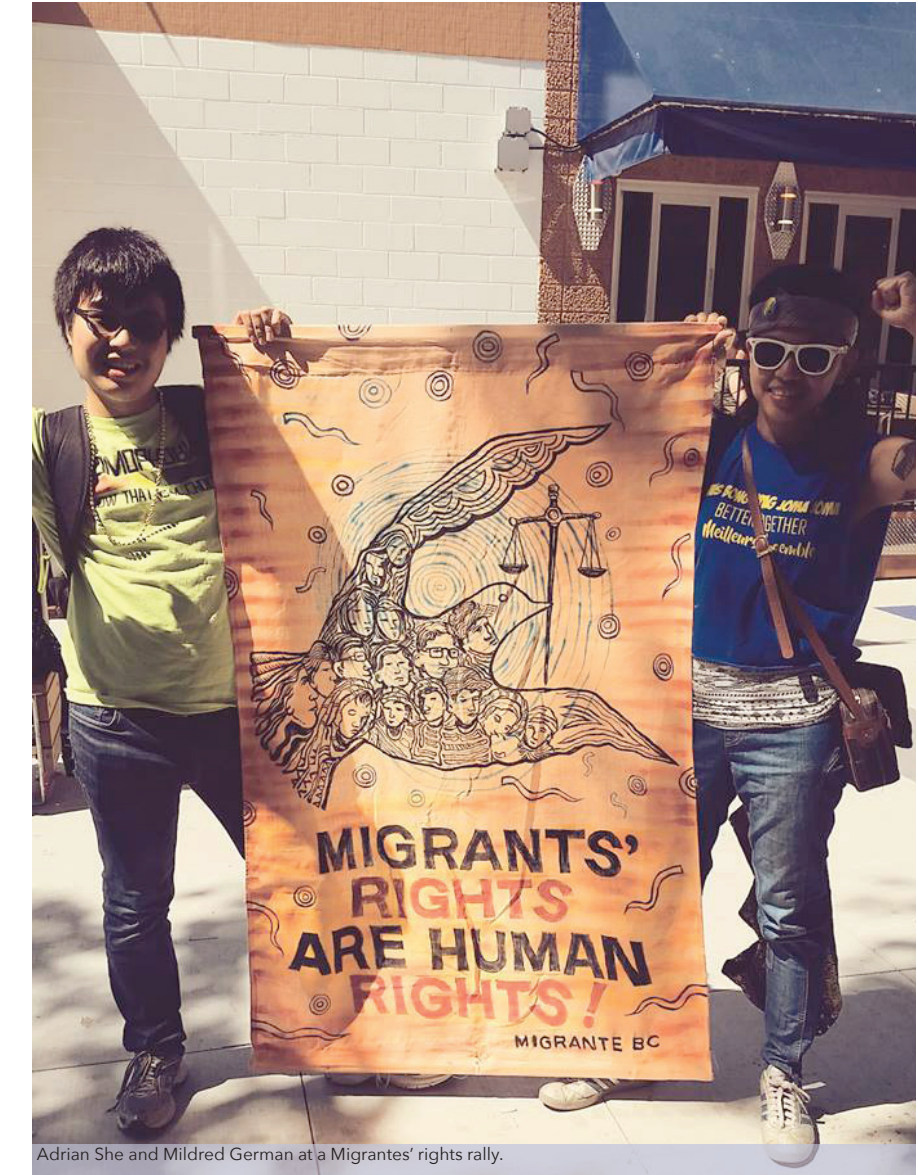 BETTER TOGETHER
Meilleurs ensemble
MIGRANTS'
RIGHTS
ARE HUMAN
RIGHTS!
MIGRANTE BC
Adrian She and Mildred German at a Migrantes' rights rally.